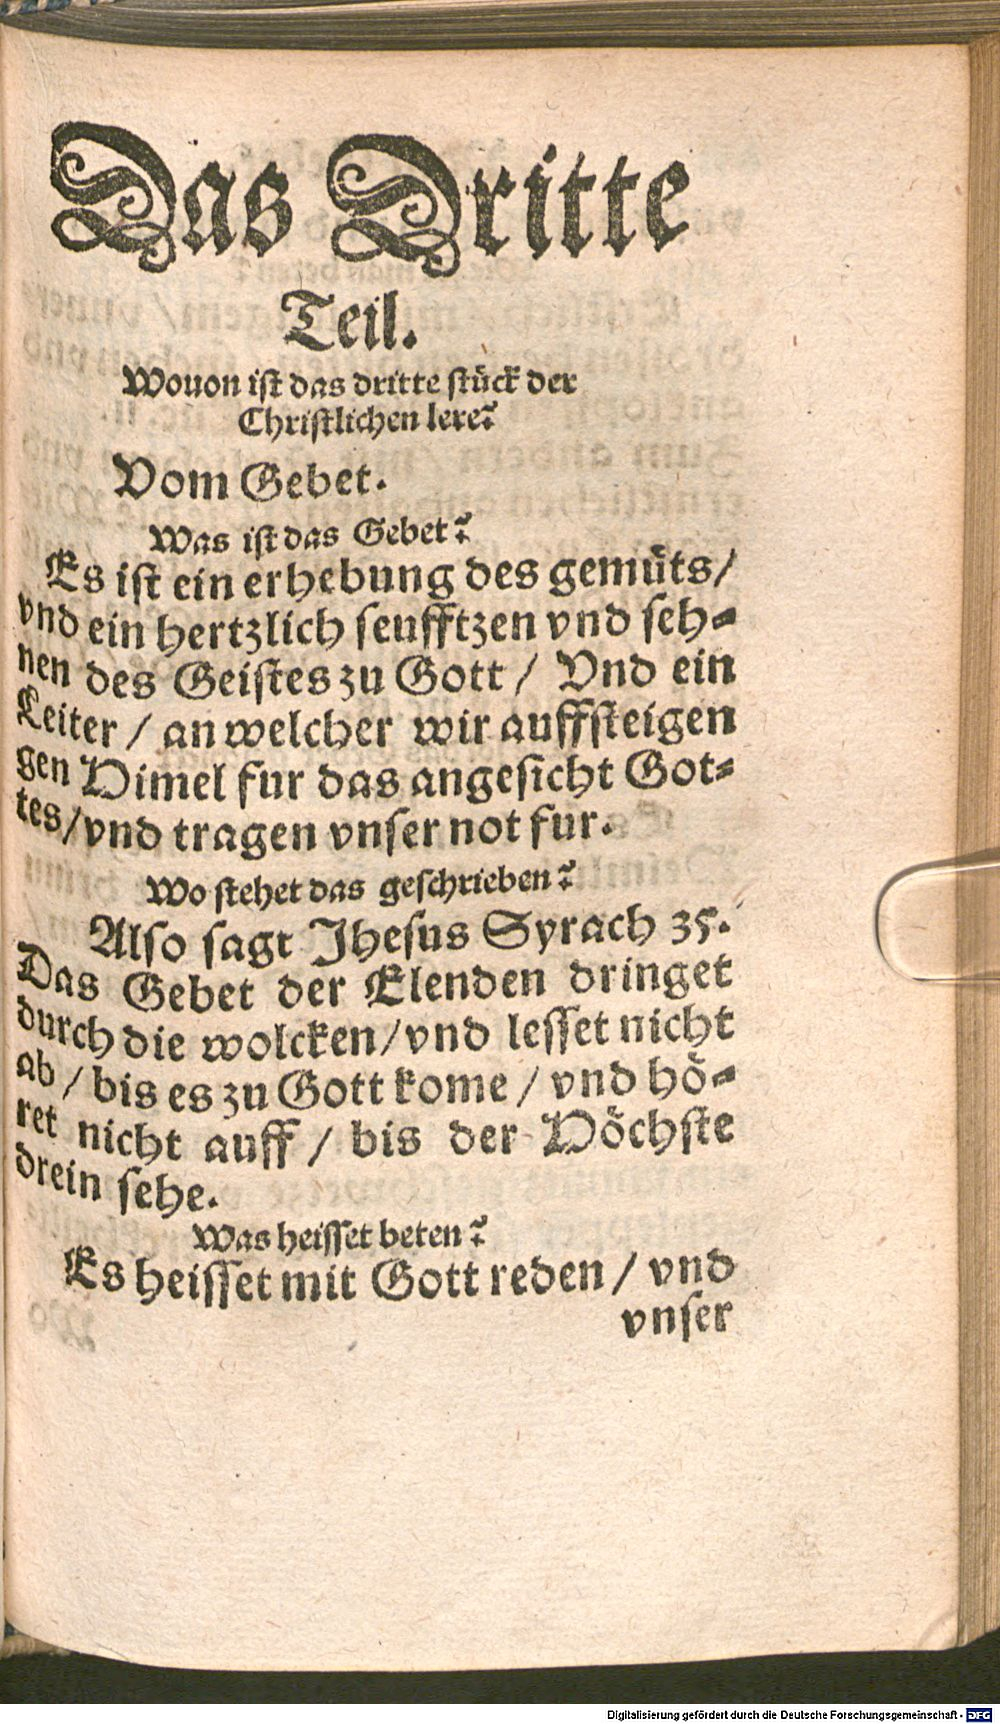 Das Dritte
Teil.
Wouon ist das dritte stück der
Christlichen lere?
Vom Gebet.
Was ist das Gebet?
Es ist ein erhebung des gemüts/
vnd ein hertzlich seufftzen vnd seh-
nen des Geistes zu Gott / Vnd ein
Leiter / an welcher wir auffsteigen
gen Himel fur das angesicht Got-
tes/vnd tragen vnser not fur.
Wo stehet das geschrieben?
Also sagt Jhesus Syrach 35.
Das Gebet der Elenden dringet
durch die wolcken/vnd lesset nicht
ab / bis es zu Gott kome / vnd hö-
ret nicht auff / bis der Höchste
drein sehe.
Was heisset beten?
Es heisset mit Gott reden / vnd
vnser
Digitalisierung gefördert durch die Deutsche Forschungsgemeinschaft - DFG